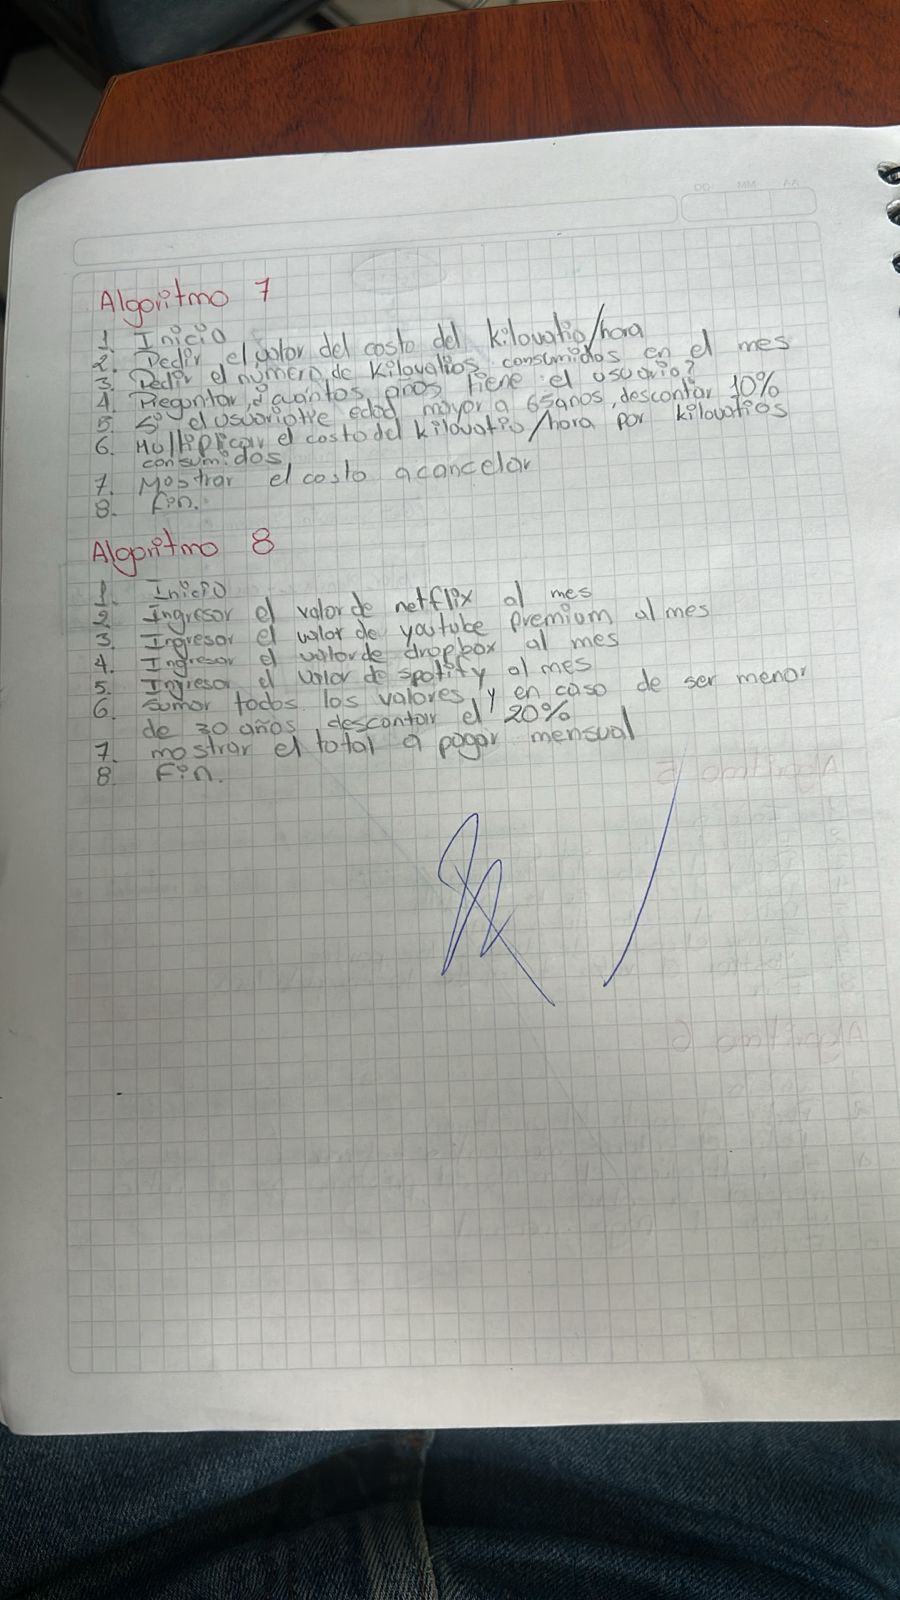 DD MM AA
Algoritmo 7
1. Inicio
2. Pedir el valor del costo del kilovatio/hora
3. Pedir el número de kilovatios consumidos en el mes
4. Preguntar ¿cuántos años tiene el usuario?
5. Si el usuario edad mayor a 65 años, descontar 10%
6. Multiplicar el costo del kilovatio/hora por kilovatios
consumidos
7. Mostrar el costo a cancelar
8. Fin.
Algoritmo 8
1. Inicio
2. Ingresar el valor de netflix al mes
3. Ingresar el valor de youtube premium al mes
4. Ingresar el valor de dropbox al mes
5. Ingresar el valor de spotify al mes
6. sumar todos los valores, y en caso de ser menor
de 30 años descontar el 20%
7. mostrar el total a pagar mensual
8. Fin.